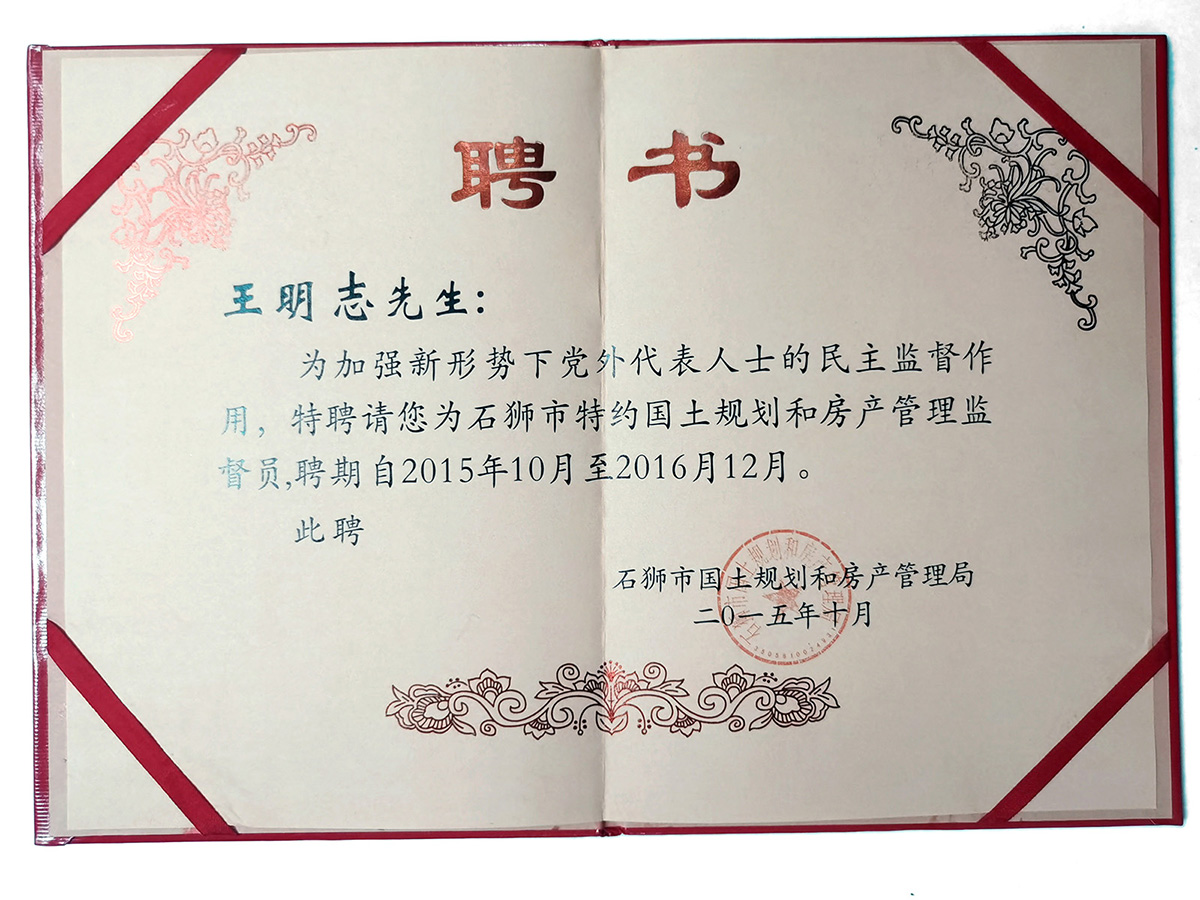 聘书
王明志先生:
为加强新形势下党外代表人士的民主监督作
用，特聘请您为石狮市特约国土规划和房产管理监
督员,聘期自2015年10月至2016月12月。
此聘
石狮市国土规划和房产管理局
二0一五年十月